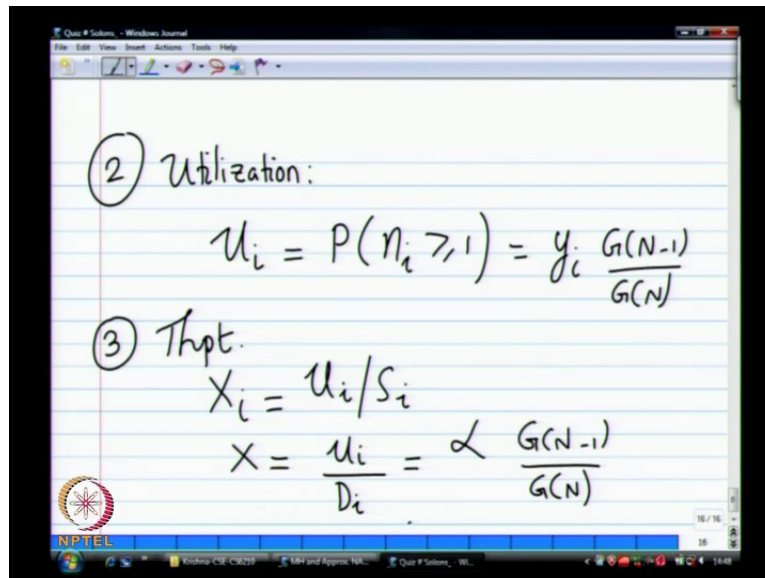 Quiz # Solons_ - Windows Journal
File Edit View Insert Actions Tools Help
② Utilization:
U_i = P(n_i ≥ 1) = y_i G(N-1)/G(N)
③ Thpt.
X_i = U_i/S_i
X = U_i/D_i = α G(N-1)/G(N)
16/16
16
NPTEL
Krishna-CSE-CS6210
MH and Approx. NA...
Quiz # Solons_ - Wi...
14:48